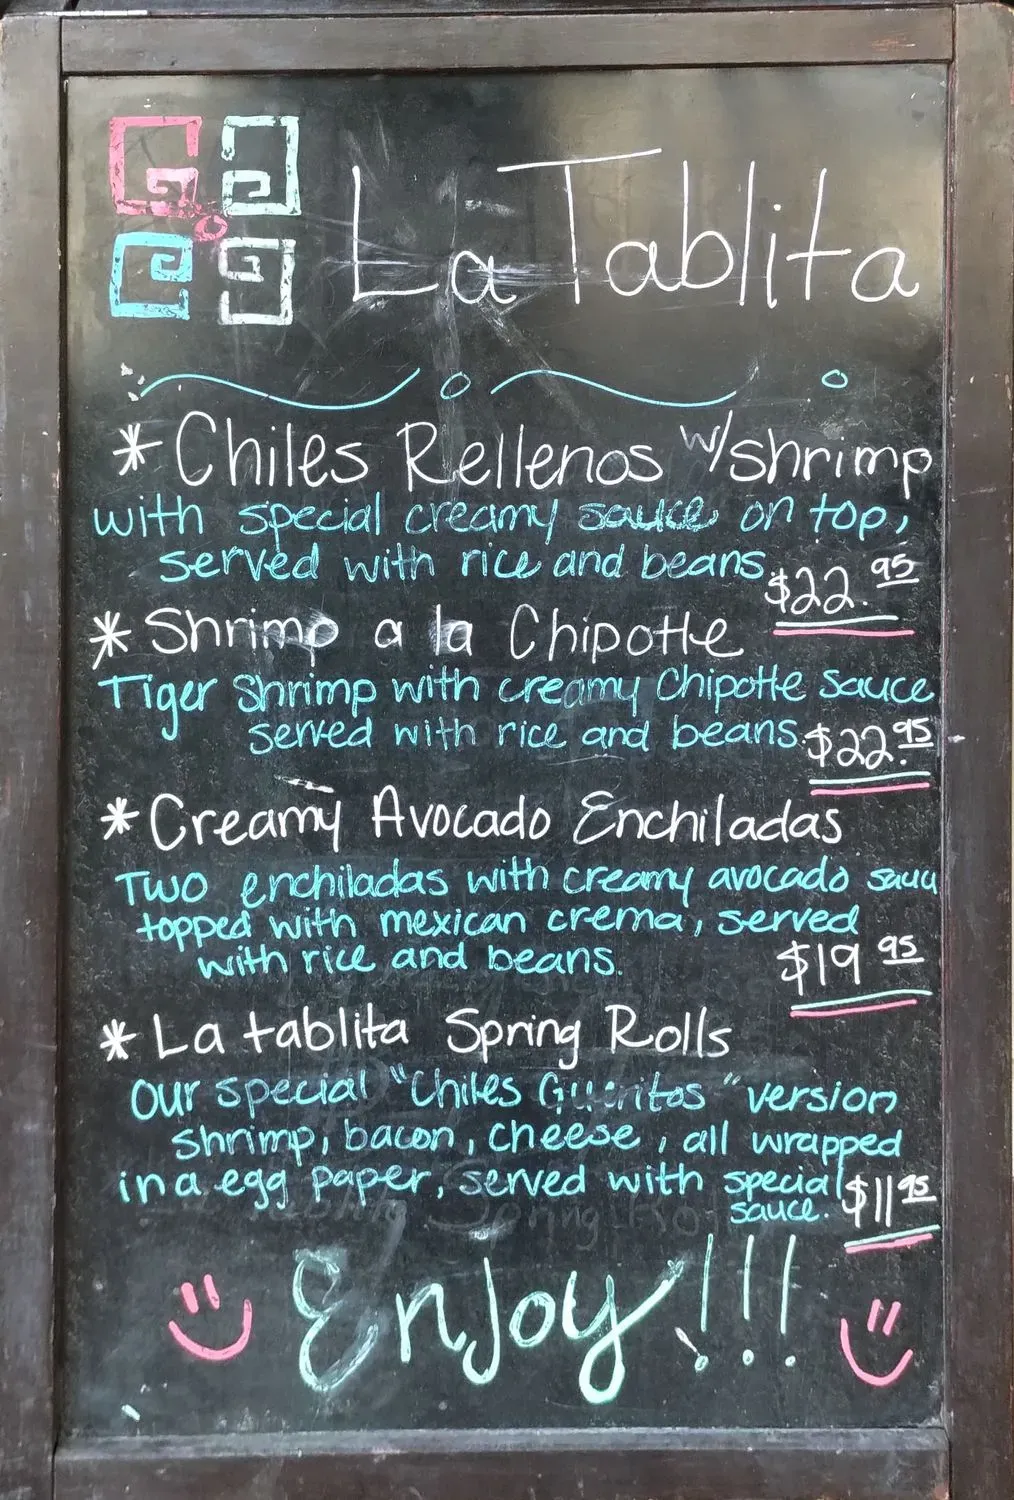 La Tablita
* Chiles Rellenos w/shrimp
with special creamy sauce on top,
served with rice and beans $22.95
* Shrimp a la Chipotle
Tiger Shrimp with creamy Chipotle sauce
served with rice and beans $22.95
* Creamy Avocado Enchiladas
Two enchiladas with creamy avocado sauce
topped with mexican crema, served
with rice and beans. $19 95
* La tablita Spring Rolls
Our special "Chiles Gueritos" version
Shrimp, bacon, cheese, all wrapped
in a egg paper, served with special
sauce. $11 95
Enjoy!!!